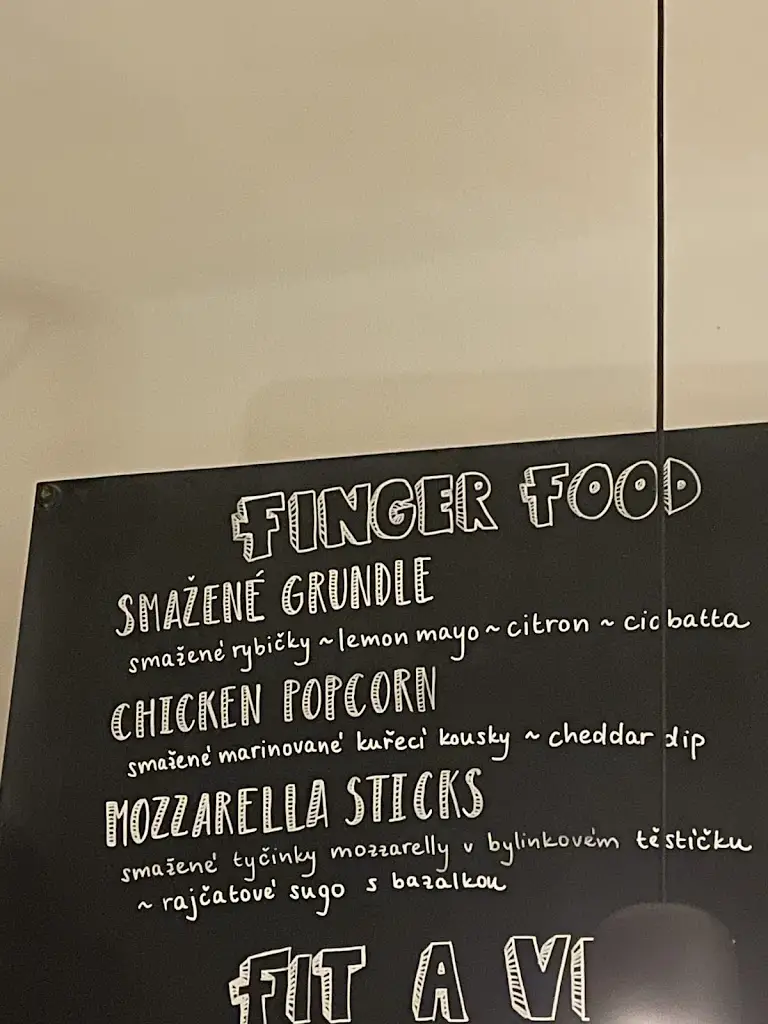 FINGER FOOD
SMAŽENÉ GRUNDLE
smažené rybičky ~ lemon mayo ~ citron ~ ciabatta
CHICKEN POPCORN
smažené marinované kuřecí kousky ~ cheddar dip
MOZZARELLA STICKS
smažené tyčinky mozzarelly v bylinkovém těstíčku
~ rajčatové sugo s bazalkou
FIT A